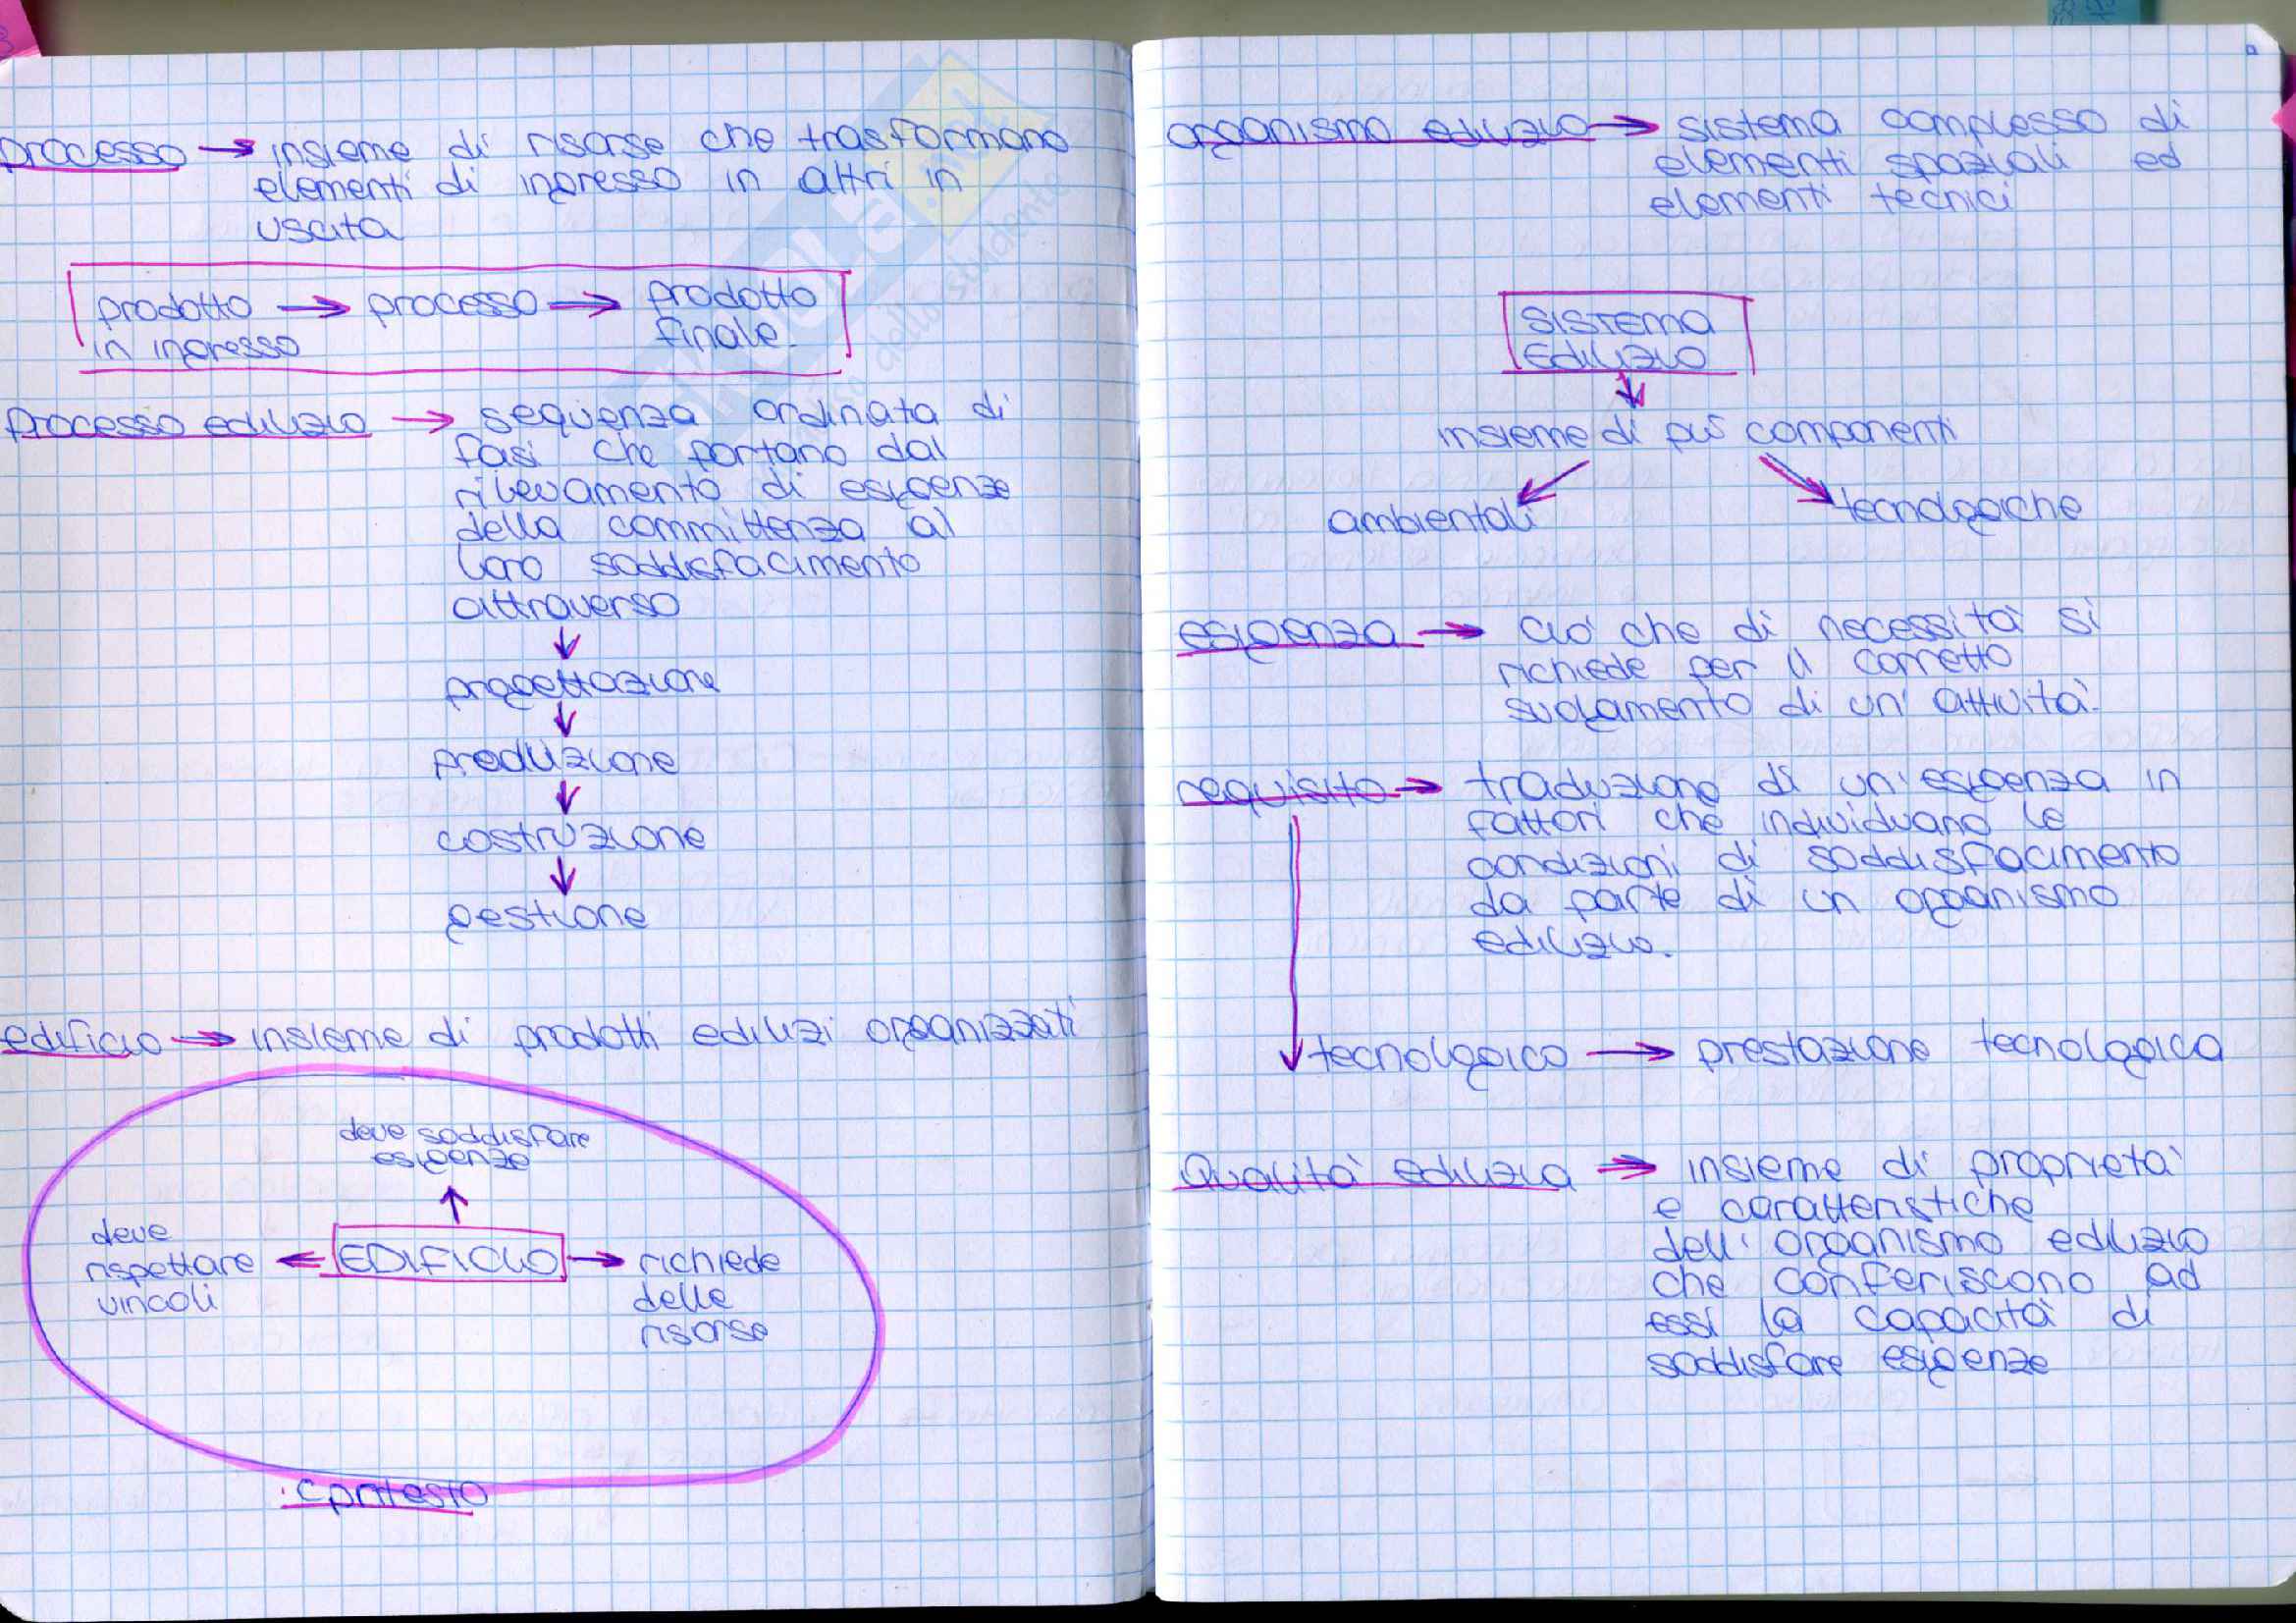 processo → insieme di risorse che trasformano
elementi di ingresso in altri in
uscita
prodotto → processo → prodotto
in ingresso finale.
Processo edilizio → sequenza ordinata di
fasi che portano dal
rilevamento di esigenze
della committenza al
loro soddisfacimento
attraverso
↓
progettazione
↓
produzione
↓
costruzione
↓
gestione
edificio → insieme di prodotti edilizi organizzati
deve soddisfare
esigenze
↑
deve
rispettare ← EDIFICIO → richiede
vincoli delle
risorse
contesto
organismo edilizio → sistema complesso di
elementi spaziali ed
elementi tecnici
SISTEMA
EDILIZIO
↓
insieme di più componenti
ambientali tecnolgoiche
esigenza → ciò che di necessità si
richiede per il corretto
svolgamento di un'attività.
requisito → traduzione di un'esigenza in
fattori che individuano le
condizioni di soddisfacimento
da parte di un organismo
edilizio.
tecnologico → prestazione tecnologica
Qualità edilizia → insieme di proprietà
e caratteristiche
dell'organismo edilizio
che conferiscono ad
essi la capacità di
soddisfare esigenze